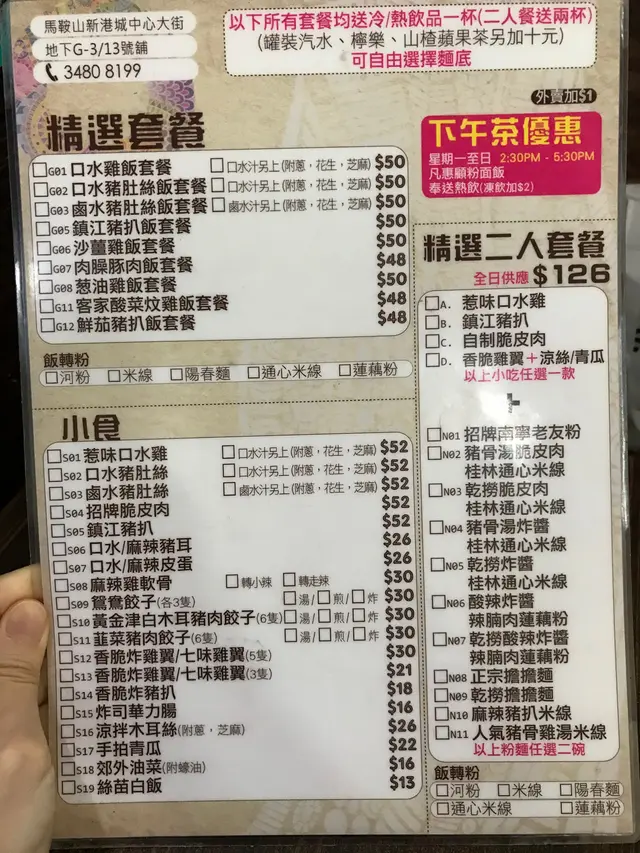 馬鞍山新港城中心大街
地下G-3/13號舖
3480 8199
以下所有套餐均送冷/熱飲品一杯(二人餐送兩杯)
(罐裝汽水、檸樂、山楂蘋果茶另加十元)
可自由選擇麵底
外賣加$1
精選套餐
G01 口水雞飯套餐 口水汁另上(附蔥,花生,芝麻) $50
G02 口水豬肚絲飯套餐 口水汁另上(附蔥,花生,芝麻) $50
G03 鹵水豬肚絲飯套餐 鹵水汁另上(附蔥,花生,芝麻) $50
G05 鎮江豬扒飯套餐 $50
G06 沙薑雞飯套餐 $50
G07 肉操豚肉飯套餐 $48
G08 葱油雞飯套餐 $50
G11 客家酸菜炆雞飯套餐 $48
G12 鮮茄豬扒飯套餐 $48
飯轉粉
河粉 米線 陽春麵 通心米線 蓮藕粉
小食
S01 惹味口水雞 口水汁另上(附蔥,花生,芝麻) $52
S02 口水豬肚絲 口水汁另上(附蔥,花生,芝麻) $52
S03 鹵水豬肚絲 鹵水汁另上(附蔥,花生,芝麻) $52
S04 招牌脆皮肉 $52
S05 鎮江豬扒 $52
S06 口水/麻辣豬耳 $26
S07 口水/麻辣皮蛋 $26
S08 麻辣雞軟骨 轉小辣 轉走辣 $30
S09 鴛鴦餃子(各3隻) 湯/ 煎/ 炸 $30
S10 黃金津白木耳豬肉餃子(6隻) 湯/ 煎/ 炸 $30
S11 韭菜豬肉餃子(6隻) 湯/ 煎/ 炸 $30
S12 香脆炸雞翼/七味雞翼(5隻) $30
S13 香脆炸雞翼/七味雞翼(3隻) $21
S14 香脆炸豬扒 $18
S15 炸司華力腸 $16
S16 涼拌木耳絲(附蔥,芝麻) $26
S17 手拍青瓜 $22
S18 郊外油菜(附蠔油) $16
S19 絲苗白飯 $13
下午茶優惠
星期一至日 2:30PM - 5:30PM
凡惠顧粉面飯
奉送熱飲(凍飲加$2)
精選二人套餐
全日供應 $126
A. 惹味口水雞
B. 鎮江豬扒
C. 自制脆皮肉
D. 香脆雞翼+涼絲/青瓜
以上小吃任選一款
+
N01 招牌南寧老友粉
N02 豬骨湯脆皮肉
桂林通心米線
N03 乾撈脆皮肉
桂林通心米線
N04 豬骨湯炸醬
桂林通心米線
N05 乾撈炸醬
桂林通心米線
N06 酸辣炸醬
辣腩肉蓮藕粉
N07 乾撈酸辣炸醬
辣腩肉蓮藕粉
N08 正宗擔擔麵
N09 乾撈擔擔麵
N10 麻辣豬扒米線
N11 人氣豬骨雞湯米線
以上粉麵任選二碗
飯轉粉
河粉 米線 陽春麵
通心米線 蓮藕粉